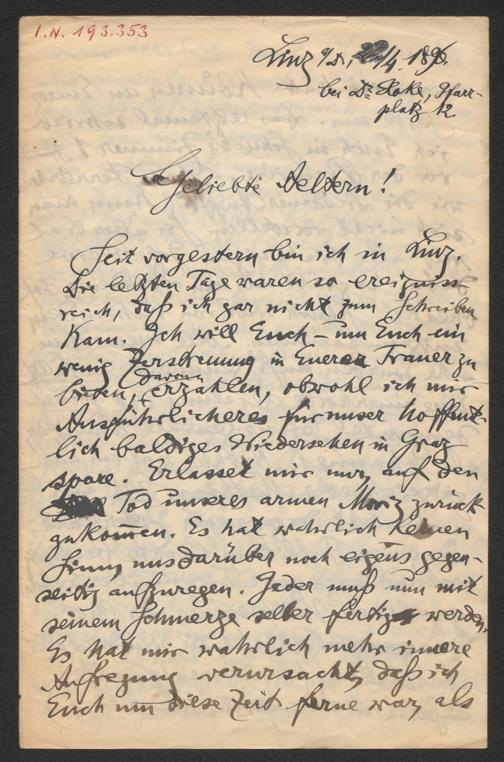 I.N. 193.353
Linz a/D, 22/4. 1896.
bei Dr. Pfarr-
platz 12
Geliebte Aeltern!
Seit vorgestern bin ich in Linz.
Die letzten Tage waren so ereigniss-
reich, daß ich gar nicht zum Schreiben
kam. Ich will Euch – um Euch ein
wenig Zerstreuung in Euerer Trauer zu
bieten, davon erzählen, obwohl ich mir
Ausführlicheres für unser hoffent-
lich baldiges Wiedersehen in Graz
spare. Erlasset mir nur, auf den
Tod unseres armen Moriz zurück
zukommen. Es hat wahrlich keinen
Sinn, uns darüber noch eigens gegen-
seitig aufzuregen. Jeder muß nun mit
seinem Schmerze selber fertig werden.
Es hat mir wahrlich mehr innere
Aufregung verursacht, daß ich
Euch um diese Zeit ferne war, als